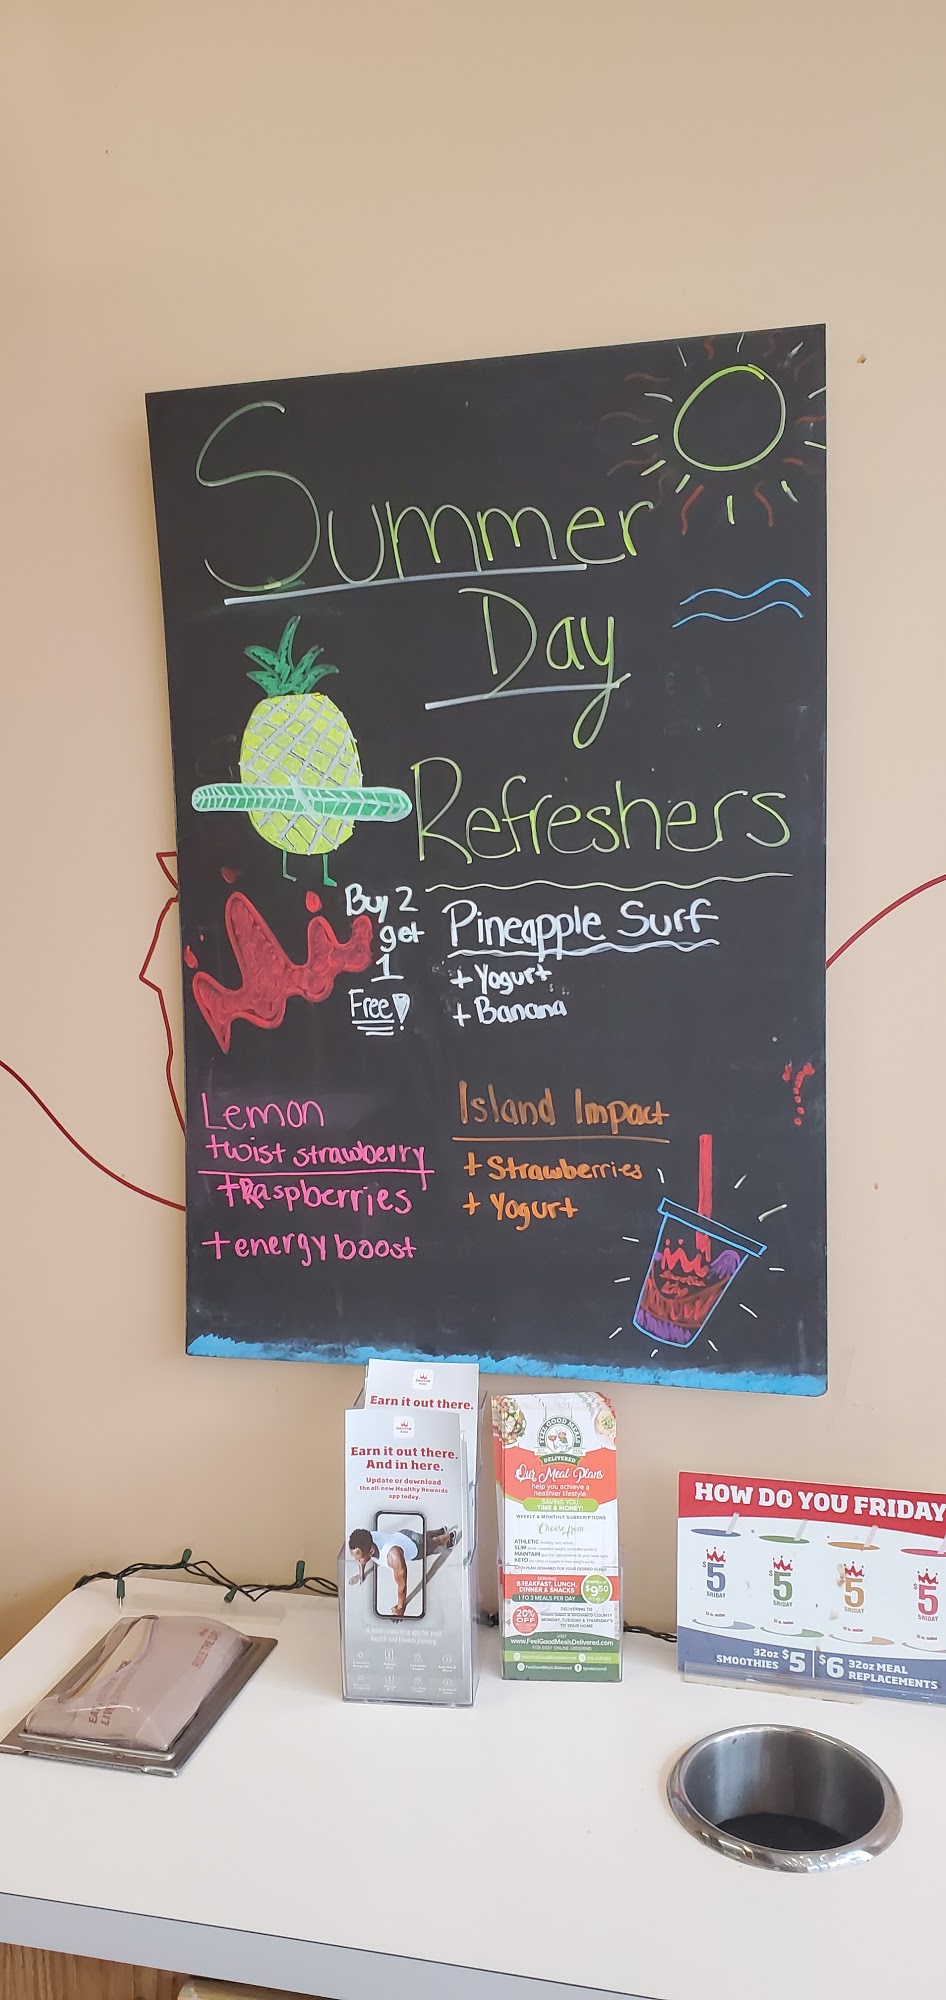 Summer
Day
Refreshers
Buy 2
get
1
Free!
Pineapple Surf
+ Yogurt
+ Banana
Lemon
twist strawberry
+Raspberries
+energy boost
Island Impact
+ Strawberries
+ Yogurt
Smoothie
King
Earn it out there.
Earn it out there.
And in here.
Update or download
the all-new Healthy Rewards
app today.
FEEL GOOD MEALS
DELIVERED
Our Meal Plans
help you achieve a
healthier lifestyle.
SAVING YOU
TIME & MONEY!
WEEKLY & MONTHLY SUBSCRIPTIONS
Choose from
ATHLETIC
SLIM
MAINTAIN
KETO
SERVING
BREAKFAST, LUNCH,
DINNER & SNACKS
1 TO 3 MEALS PER DAY
$9.50
20%
OFF
DELIVERING TO
MONDAY, TUESDAY & THURSDAY'S
TO YOUR HOME
VISIT
www.FeelGoodMealsDelivered.com
FOR EASY ONLINE ORDERING
HOW DO YOU FRIDAY
$5
5RIDAY
$5
5RIDAY
$5
5RIDAY
$5
5RIDAY
32oz
SMOOTHIES $5
$6 32oz MEAL
REPLACEMENTS